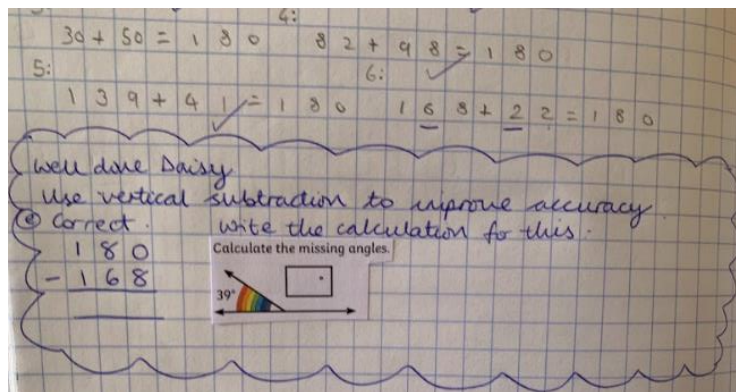 4:
30 + 50 = 180 82 + 98 = 180
5: 6:
139 + 41 = 180 168 + 22 = 180
Well done Daisy
Use vertical subtraction to improve accuracy.
6 Correct. Write the calculation for this:
180
- 168
Calculate the missing angles.
39°